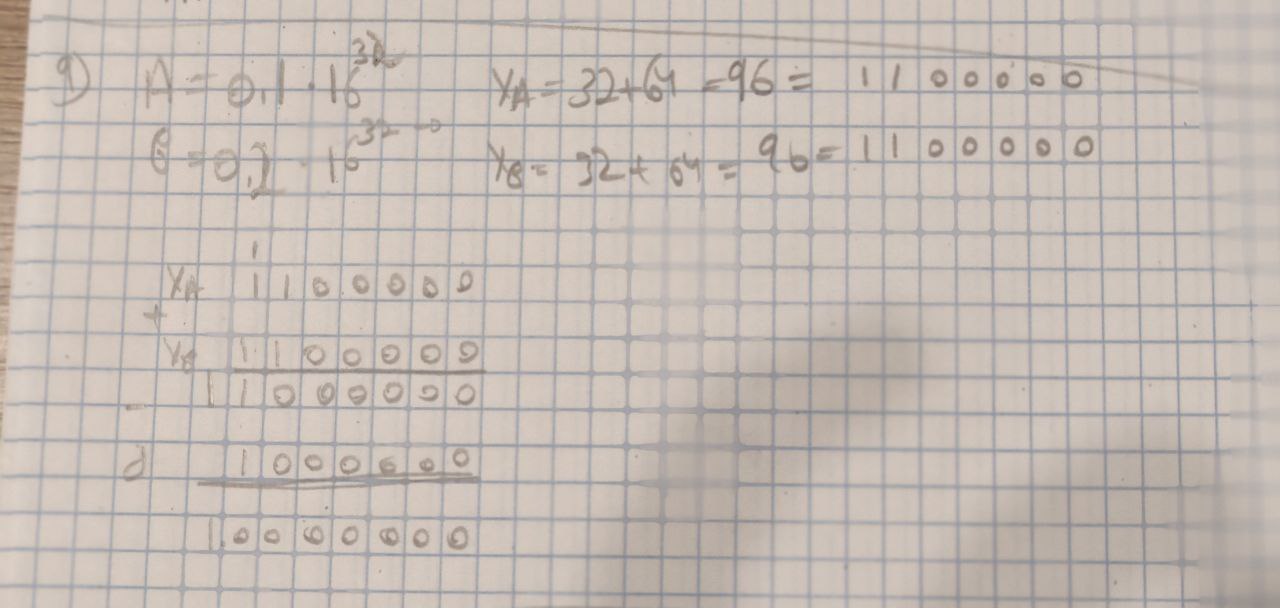 A = 0,1 · 16^32 X_A = 32+64 = 96 = 1100000
= 0,1 · 16^32 X_B = 32 + 64 = 96 = 1100000
1
X_A 1100000
+
X_B 1100000
11000000
-
d 1000000
10000000